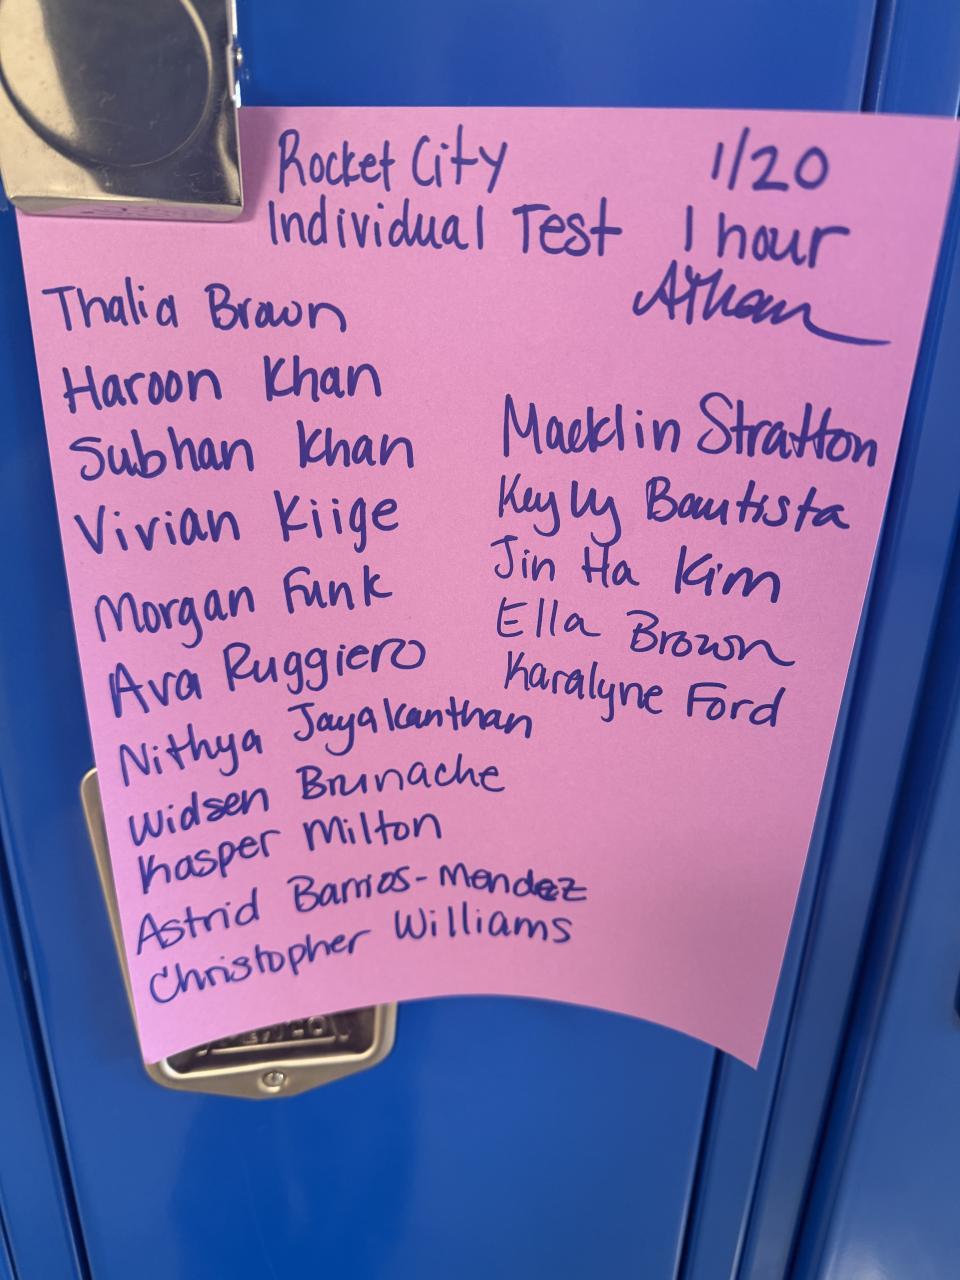 Rocket City 1/20
Individual Test 1 hour
Thalia Brown
Haroon Khan
Subhan Khan
Vivian Kiige
Morgan Funk
Ava Ruggiero
Nithya Jayakanthan
Widsen Brunache
Kasper Milton
Astrid Barrios-Mendez
Christopher Williams
Maeklin Stratton
Keyly Bautista
Jin Ha Kim
Ella Brown
Karalyne Ford